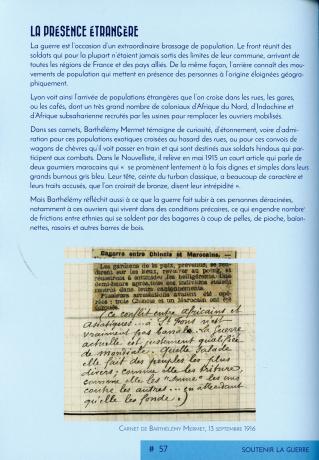 LA PRÉSENCE ÉTRANGÈRE
La guerre est l'occasion d'un extraordinaire brassage de population. Le front réunit des
soldats qui pour la plupart n'étaient jamais sortis des limites de leur commune, arrivant de
toutes les régions de France et des pays alliés. De la même façon, l'arrière connaît des mou-
vements de population qui mettent en présence des personnes à l'origine éloignées géogra-
phiquement.
Lyon voit ainsi l'arrivée de populations étrangères que l'on croise dans les rues, les gares,
ou les cafés, dont un très grand nombre de coloniaux d'Afrique du Nord, d'Indochine et
d'Afrique subsaharienne recrutés par les usines pour remplacer les ouvriers mobilisés.
Dans ses carnets, Barthélémy Mermet témoigne de curiosité, d'étonnement, voire d'admi-
ration pour ces populations exotiques croisées au hasard des rues, ou pour ces convois de
wagons de chèvres qu'il voit passer en train et qui sont destinés aux soldats hindous qui par-
ticipent aux combats. Dans le Nouvelliste, il relève en mai 2015 un court article qui parle de
deux goumiers marocains qui « se promènent lentement à la fois dignes et simples dans leurs
grands burnous gris bleu. Leur tête, ceinte du turban classique, a beaucoup de caractère et
leurs traits accusés, que l'on croirait de bronze, disent leur intrépidité ».
Mais Barthélémy réfléchit aussi à ce que la guerre fait subir à ces personnes déracinées,
notamment à ces ouvriers qui vivent dans des conditions précaires, ce qui engendre nombre
de frictions entre ethnies qui se soldent par des bagarres à coup de pelles, de pioche, baïon-
nettes, rasoirs et autres barres de bois.
Bagarre entre Chinois et Marocains. —
Les gardiens de la paix, prévenus, se ren-
dirent sur les lieux, revolver au poing, et
réussirent à séparer les belligérants. Une
demi-heure après, tous ces individus étaient
rentrés dans leurs casernements.
Plusieurs arrestations avaient été opé-
rées : trois Chinois et un Marocain ont été
(Ce conflit entre africains et
asiatiques... à St Fons n'est
vraiment pas banale. La guerre
actuelle est justement qualifiée
de mondiale. Quelle salade
elle fait des peuples les plus
divers; comme elle les triture,
comme elle les "lance" les uns
contre les autres... en attendant
qu'elle les fonde.)
CARNET DE BARTHÉLEMY MERMET, 13 SEPTEMBRE 1916
# 57
SOUTENIR LA GUERRE